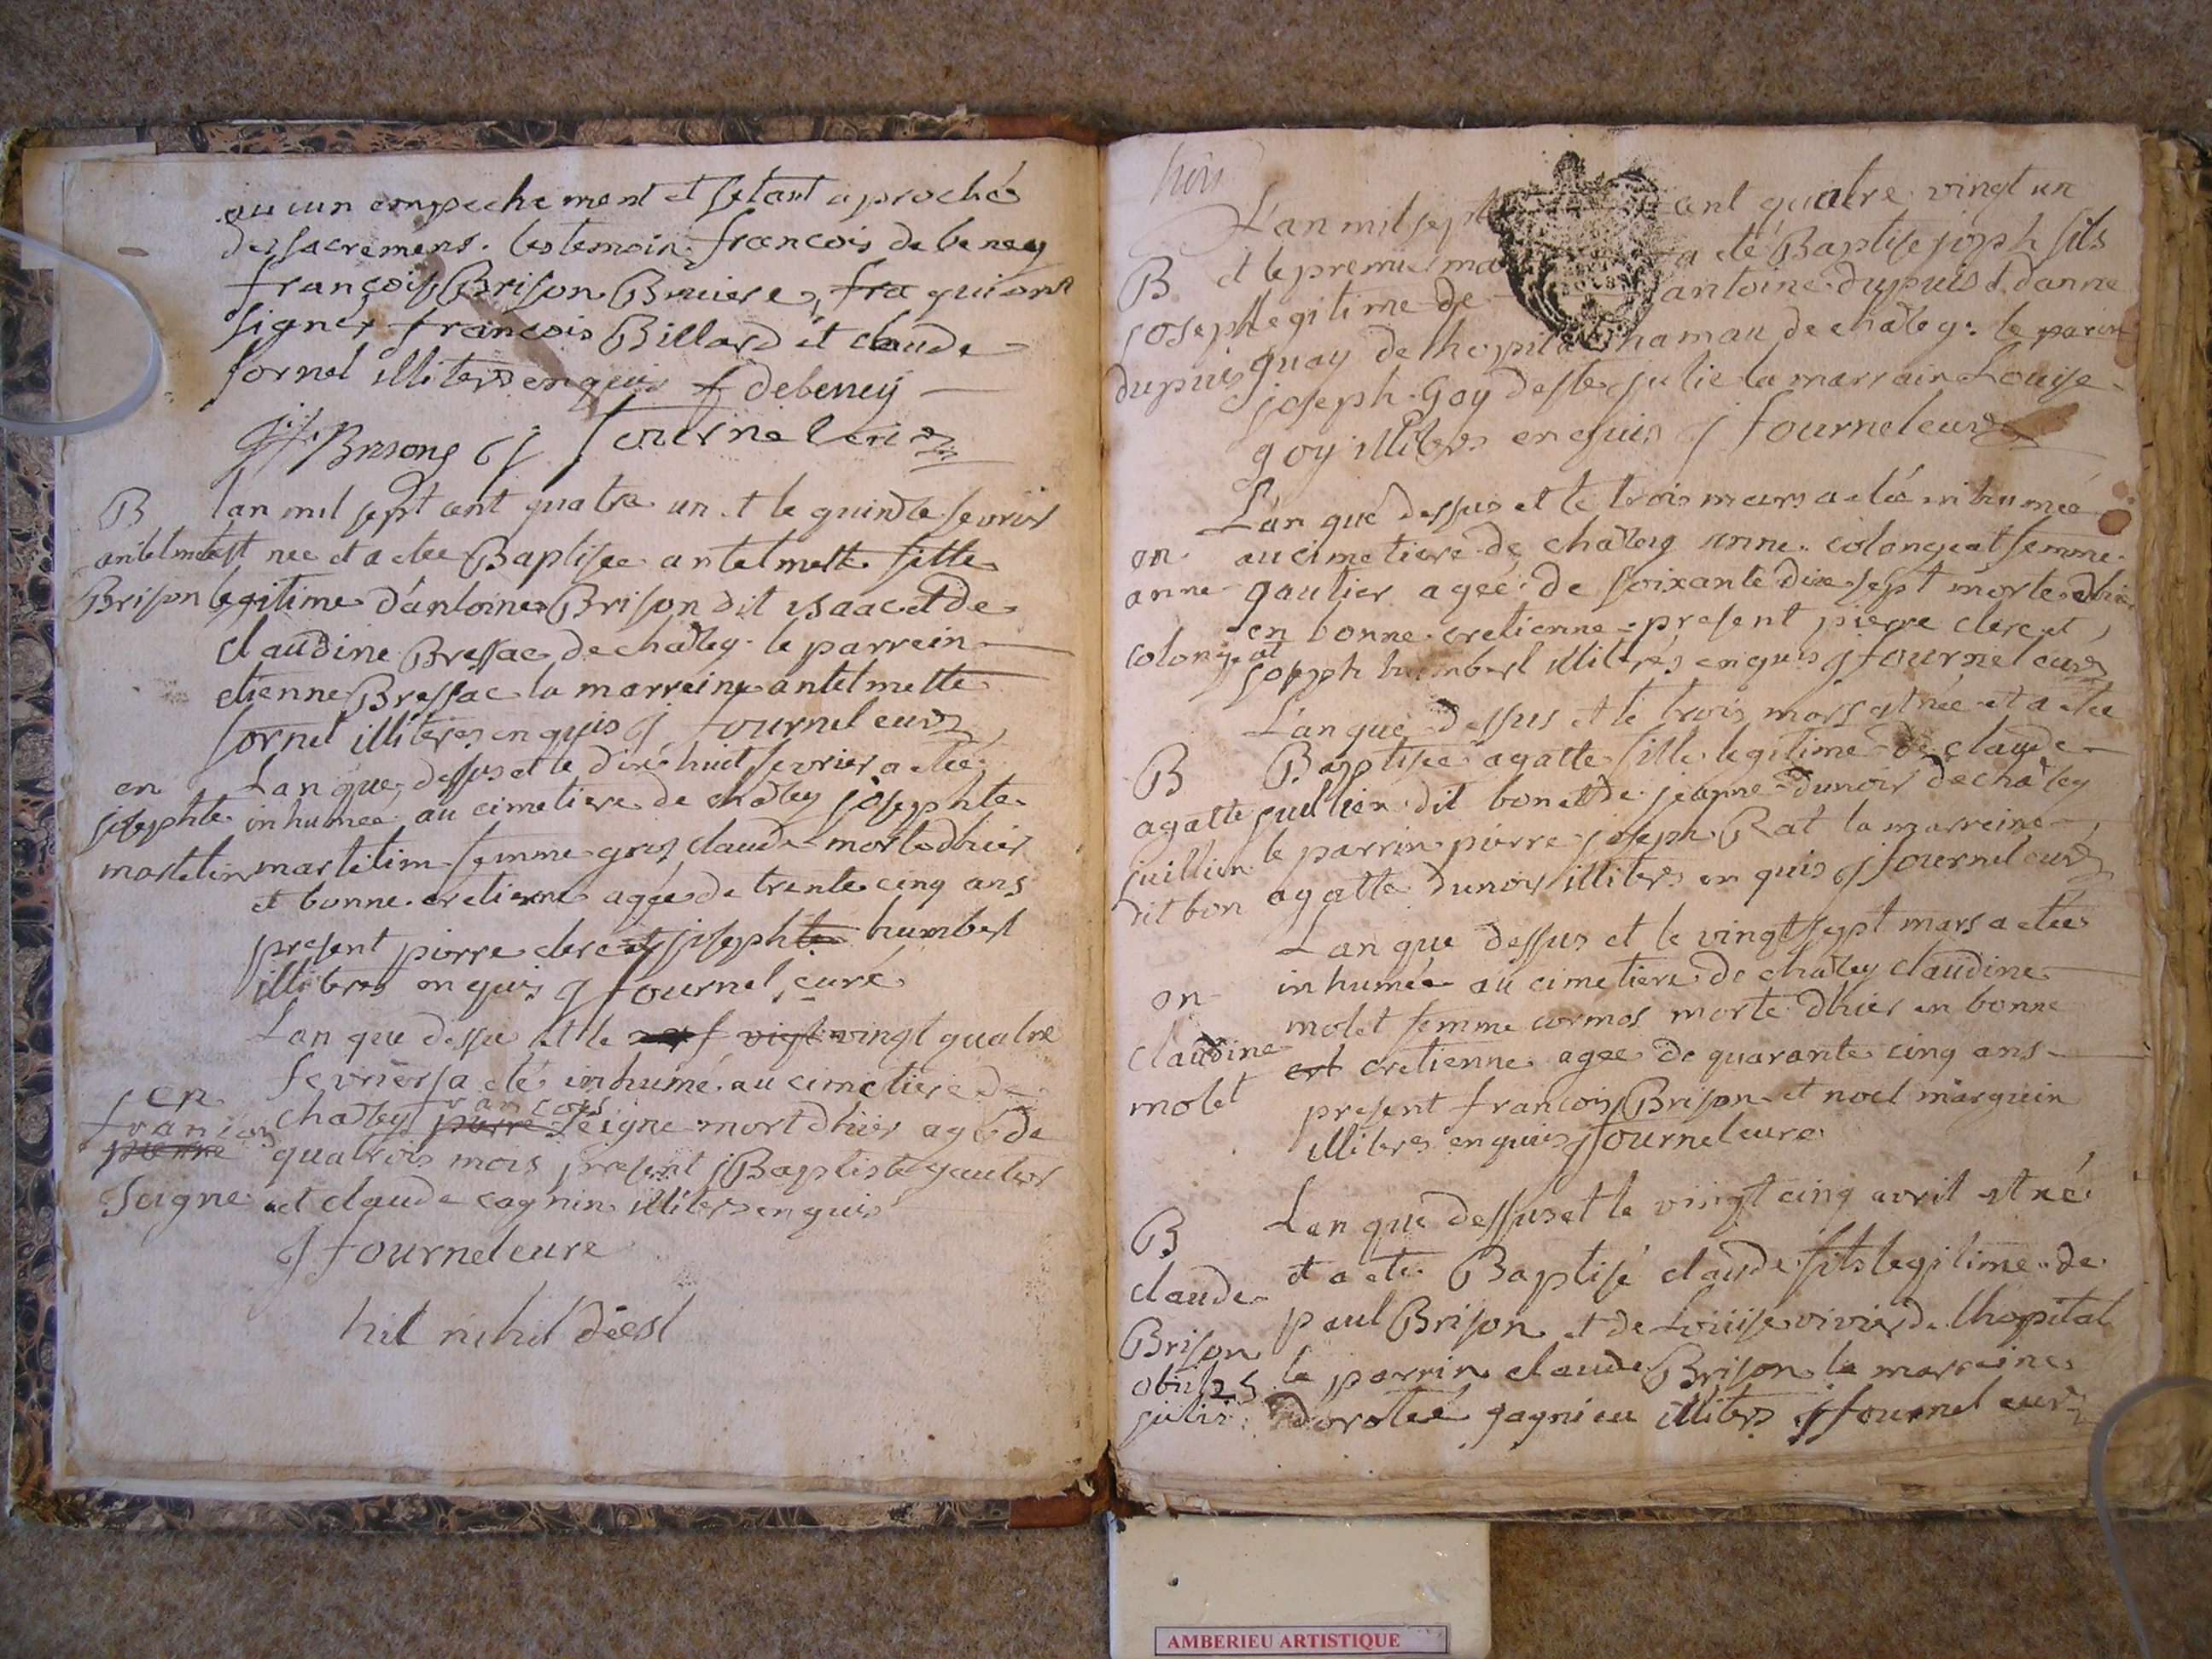 aucun empechement et setant aproché
des sacremens. les temoin francois debeney
françois Brison Bruiere, fra qui ont
signez francois Billard et claude
fornel illiteres enquis f debeney
Brisong j fournel curé
B lan mil sept cent quatre un et le quinze fevrier
antelmette est nee et a etee Baptisee antelmette fille
Brison legitime d'antoine Brison dit isaac et de
claudine Bressac de chaley le parrein
etienne Bressac la marreine antelmette
fornel illiteres enquis j fournel curé
en Lan que dessus et le dixe huit fevrier a etée
josephte inhumée au cimetiere de chaley josephte
martelin martelim femme gros claude morte dhier
et bonne cretienne agée de trente cinq ans
present pierre clerc et josephte humbert
illiteres enquis j fournel curé
Lan que dessu et le vigt vingt quatre
fevrier a eté inhumé au cimetiere de
en chaley pierre francois seigne mort dhier agé de
francois pierre quatrois mois present jBaptiste gautier
Seigne et claude cagnin illiteres enquis
j fournel cure
hil nihil deest
L'an mil sept cent quatre vingt un
B et le premier ma a eté Baptise joseph fils
joseph legitime de antoine dupuis et danne
dupuis guay de lhopital hamau de chaley. le parin
joseph Goy de ste julie la marrain Louise
goy illiteres enquis j fournel curé
L'an que dessus et le trois mars a etée inhumée
en au cimetiere de chaley anne colongeat femme
anne gautier agée de soixante dixe sept morte dhier
colongeat en bonne cretienne present pierre clerc et
joseph humbert illiterés enquis j fournel curé
L'an que dessus et le trois mars est née et a etee
B Baptisée agatte fille legitime de claude
agatte juillien dit bon et de jeanne dunoir de chaley
juillien le parrin pierre joseph Rat la marreine
dit bon agatte dunoir illiteres enquis j fournel curé
Lan que dessus et le vingt sept mars a etée
en inhumée au cimetiere de chaley claudine
claudine molet femme cormos morte dhier en bonne
molet est cretienne agee de quarante cinq ans
present francois Brison et noel marguin
illiteres enquis j fournel cure
B Lan que dessus et le vingt cinq avril est né
claude et a ete Baptisé claude fils legitime de
Brison paul Brison et de Louise vivier de lhopital
obiit 25 le parrin claude Brison la marreine
julii dorotée gagnieu illiteres j fournel curé
AMBERIEU ARTISTIQUE